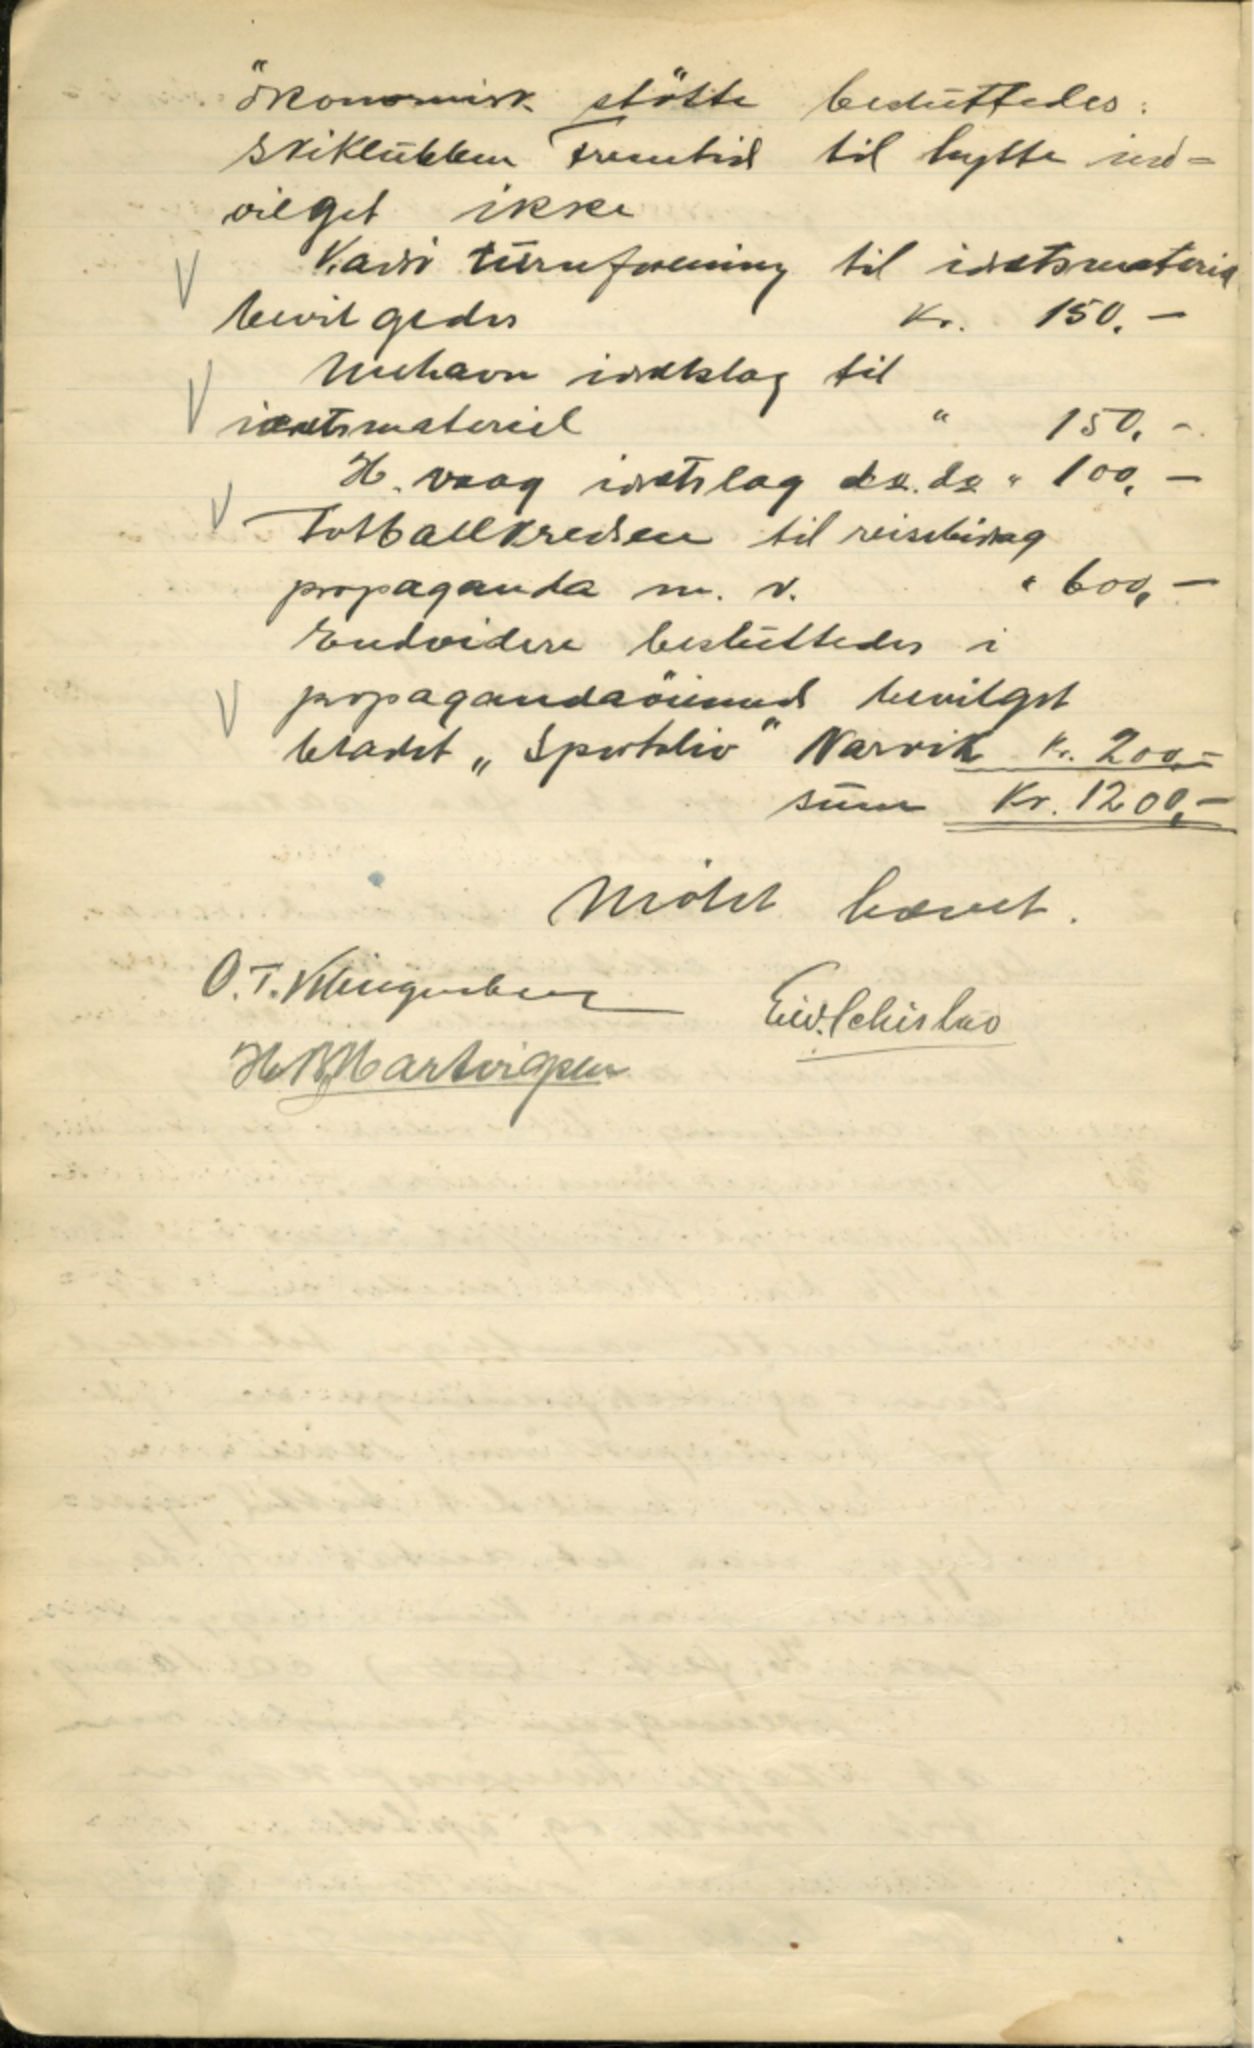 økonomisk støtte besluttedes:
Skiklubben Fremtid til hytte ind-
vilget ikke
Vadsø turnforening til idrætsmateriel
bevilgedes Kr. 150,-
Mehavn idrætslag til
idrætsmateriel " 150,-
H. vaag idrætslag do. do " 100,-
Fotballkredsen til reisebidrag
propaganda m. v. " 600,-
Endvidere besluttedes i
propagandaøiemed bevilget
bladet „Sportsliv" Narvik Kr. 200,-
sum Kr. 1200,-
Møtet hævet.
O. T. Klingenberg
H. B. Martvigsen